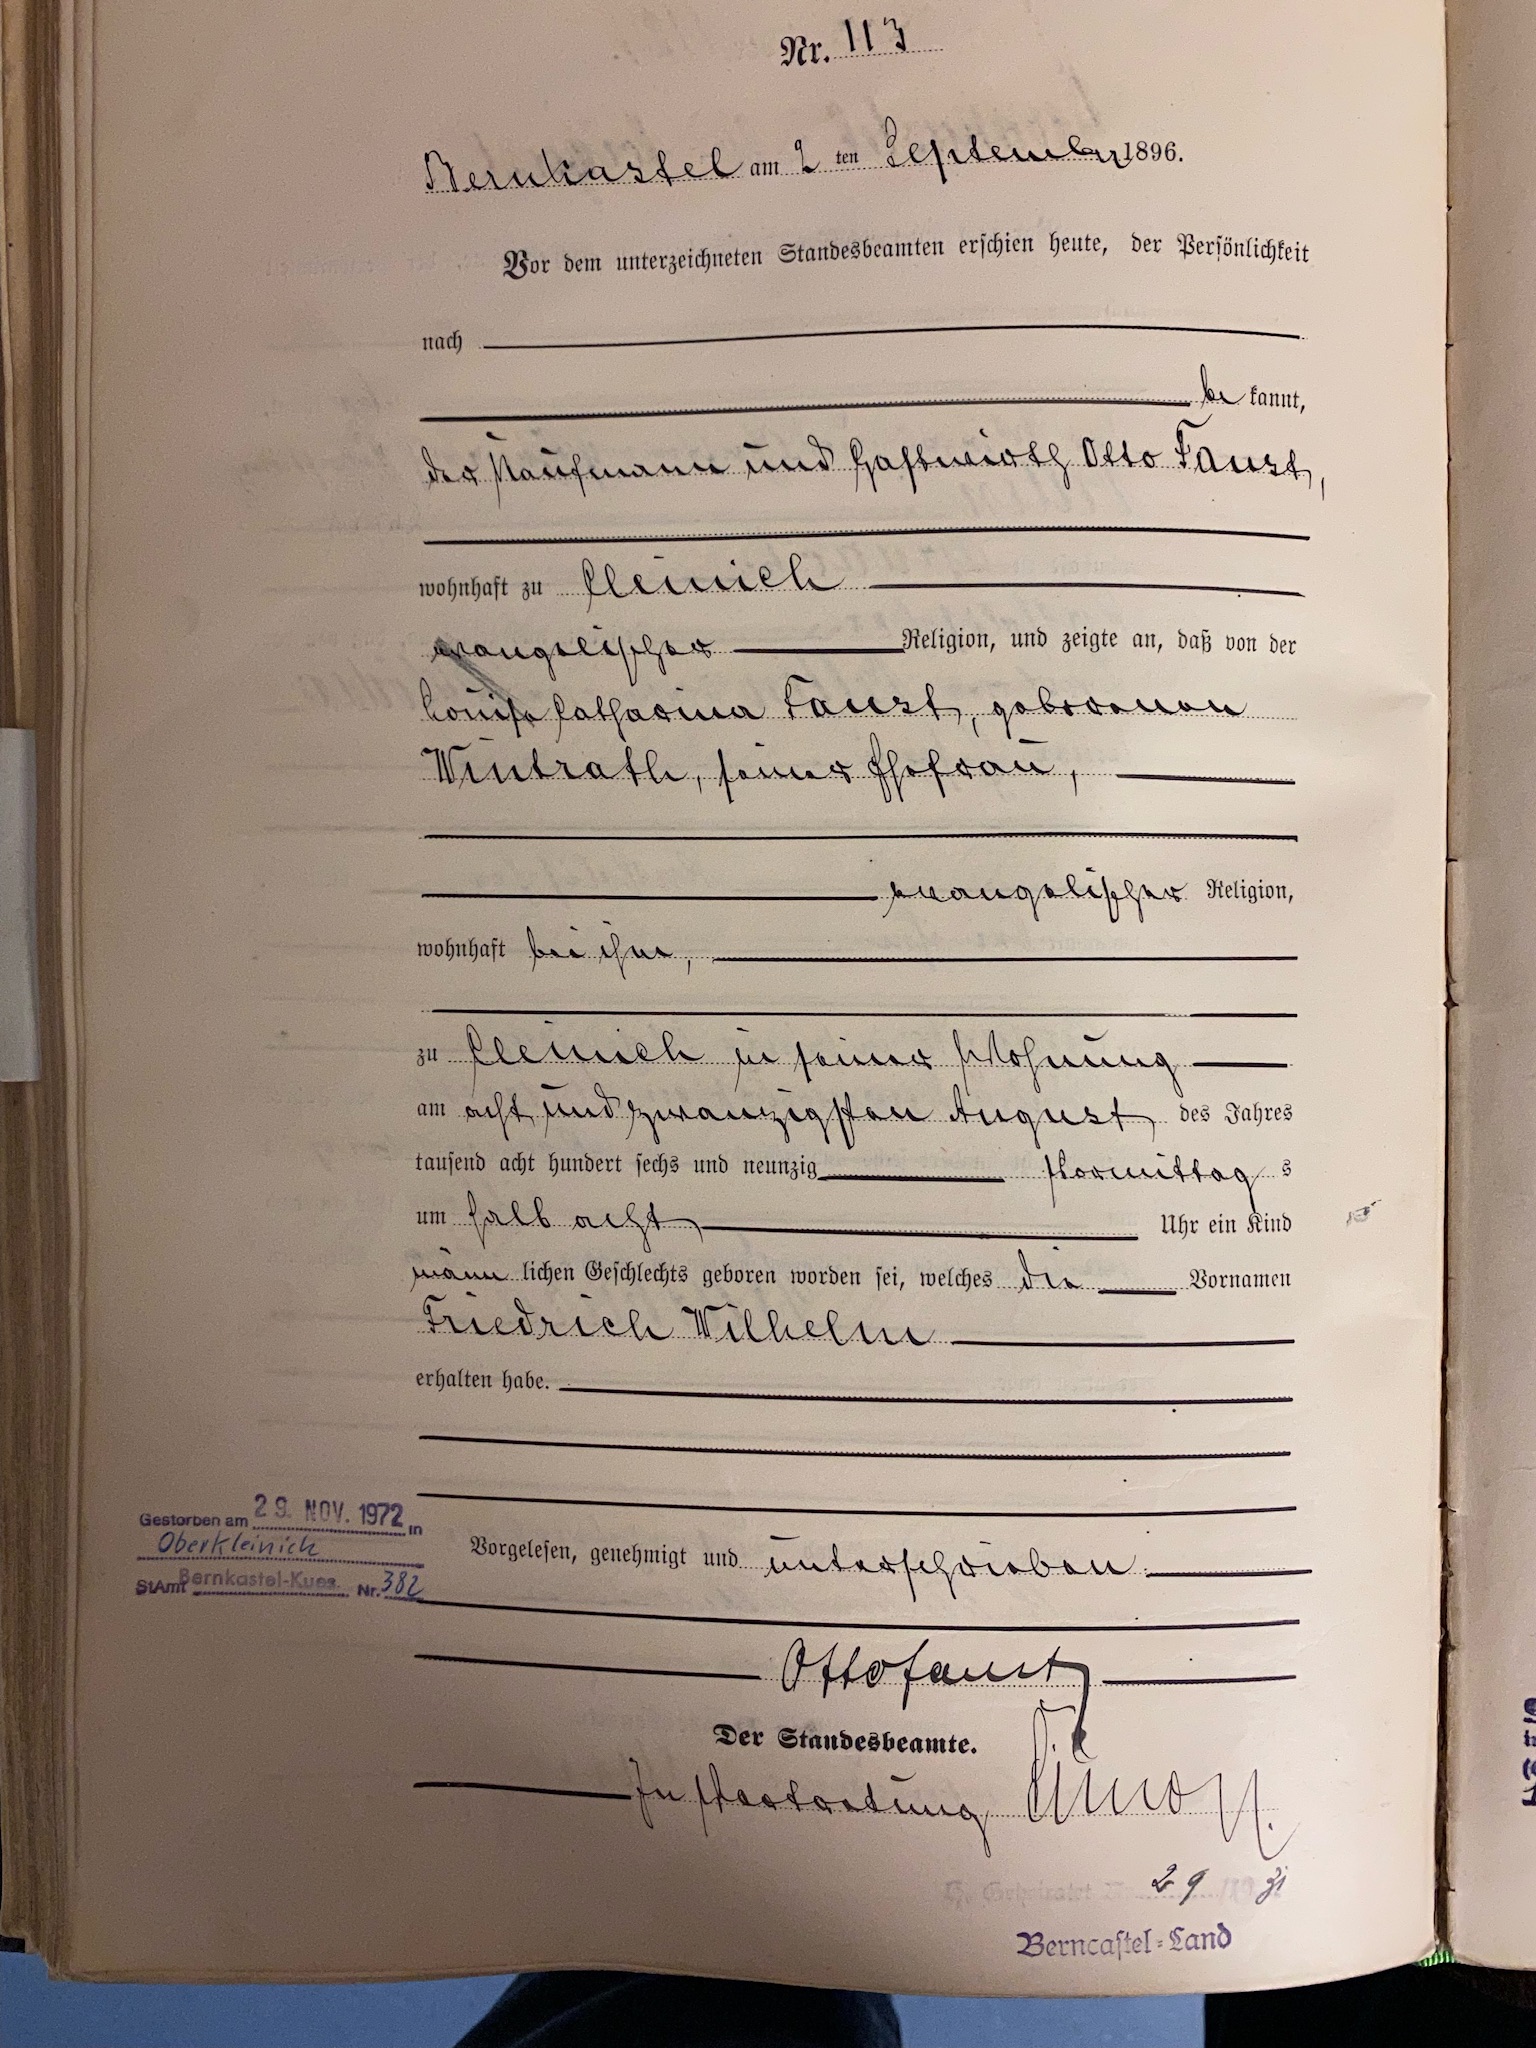 Nr. 113
Bernkastel am 2 ten September 1896.
Vor dem unterzeichneten Standesbeamten erschien heute, der Persönlichkeit
nach
be kannt,
der Kaufmann und Gastwirth Otto Faust,
wohnhaft zu Cleinich
evangelischer Religion, und zeigte an, daß von der
Louise Catharina Faust, geborenen
Wintrath, seiner Ehefrau,
evangelischer Religion,
wohnhaft bei ihm,
zu Cleinich in seiner Wohnung
am acht und zwanzigsten August des Jahres
tausend acht hundert sechs und neunzig Vormittag s
um halb acht Uhr ein Kind
männ lichen Geschlechts geboren worden sei, welches die Vornamen
Friedrich Wilhelm
erhalten habe.
Gestorben am 29. NOV. 1972 in
Oberkleinich
StAmt Bernkastel-Kues Nr. 382
Vorgelesen, genehmigt und unterschrieben
Otto Faust
Der Standesbeamte.
In Vertretung Simon.
Geheiratet 29 31
Berncastel=Land